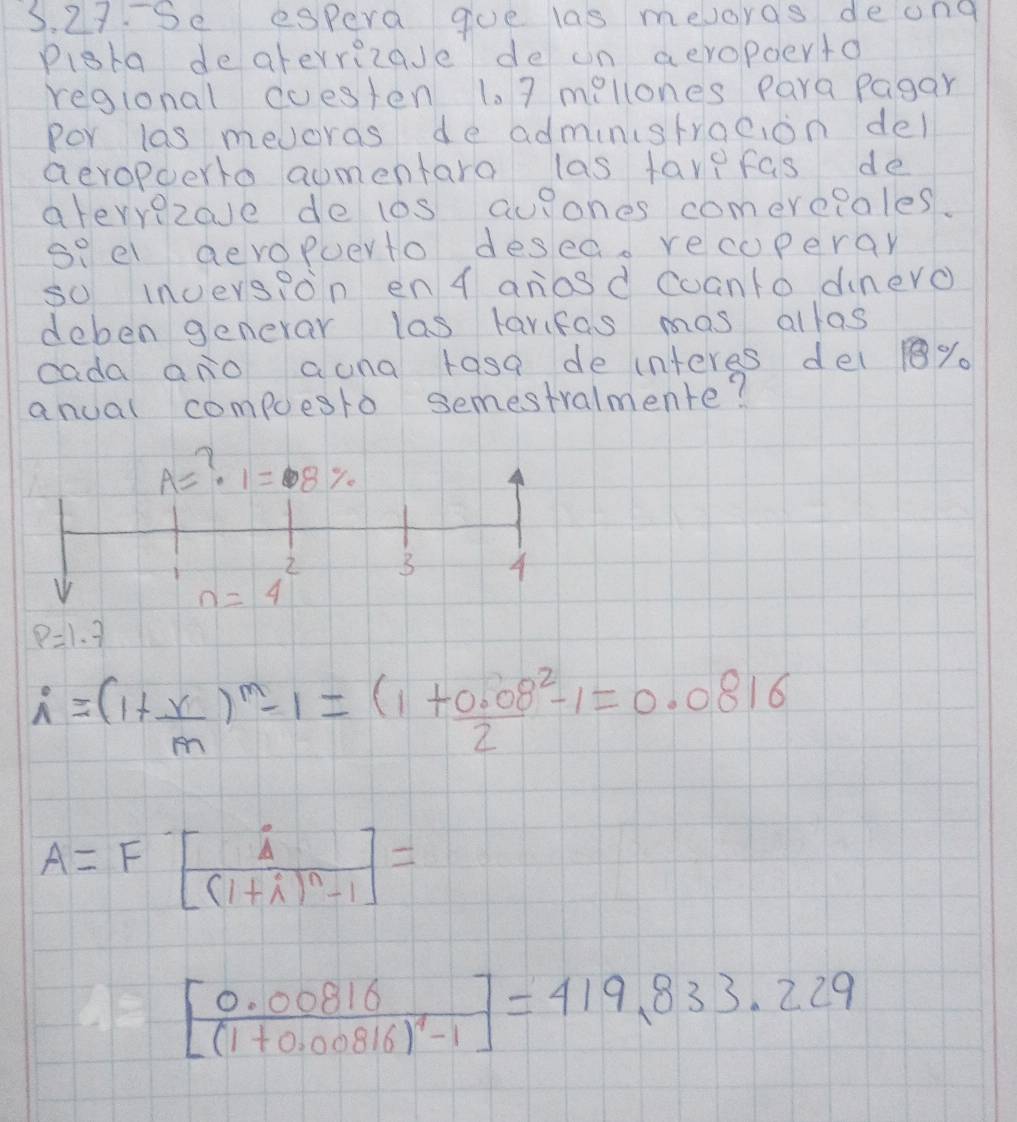 3.27.- Se espera que las mejoras de una
Pista de aterrizaje de un aeropoerto
regional cuesten 1.7 millones Para Pagar
Por las mejoras de administración del
aeropuerto aumentara las tarifas de
aterrizaje de los aviones comerciales.
Si el aeropuerto desea. recuperar
su inversiòn en 4 años ¿ Cuanto dinero
deben generar las tarifas mas altas
cada año a una tasa de interes del 8%
anual compuesto semestralmente?
A=? i=08%
1 2 3 4
n= 4
P=1.7
i = (1+ r/m)^m -1 = (1 + 0.08/2^2 -1 = 0.0816
A = F [ i / (1+i)^n -1 ] =
[ 0.00816 / (1+0.00816)^4 -1 ] = 419,833.229